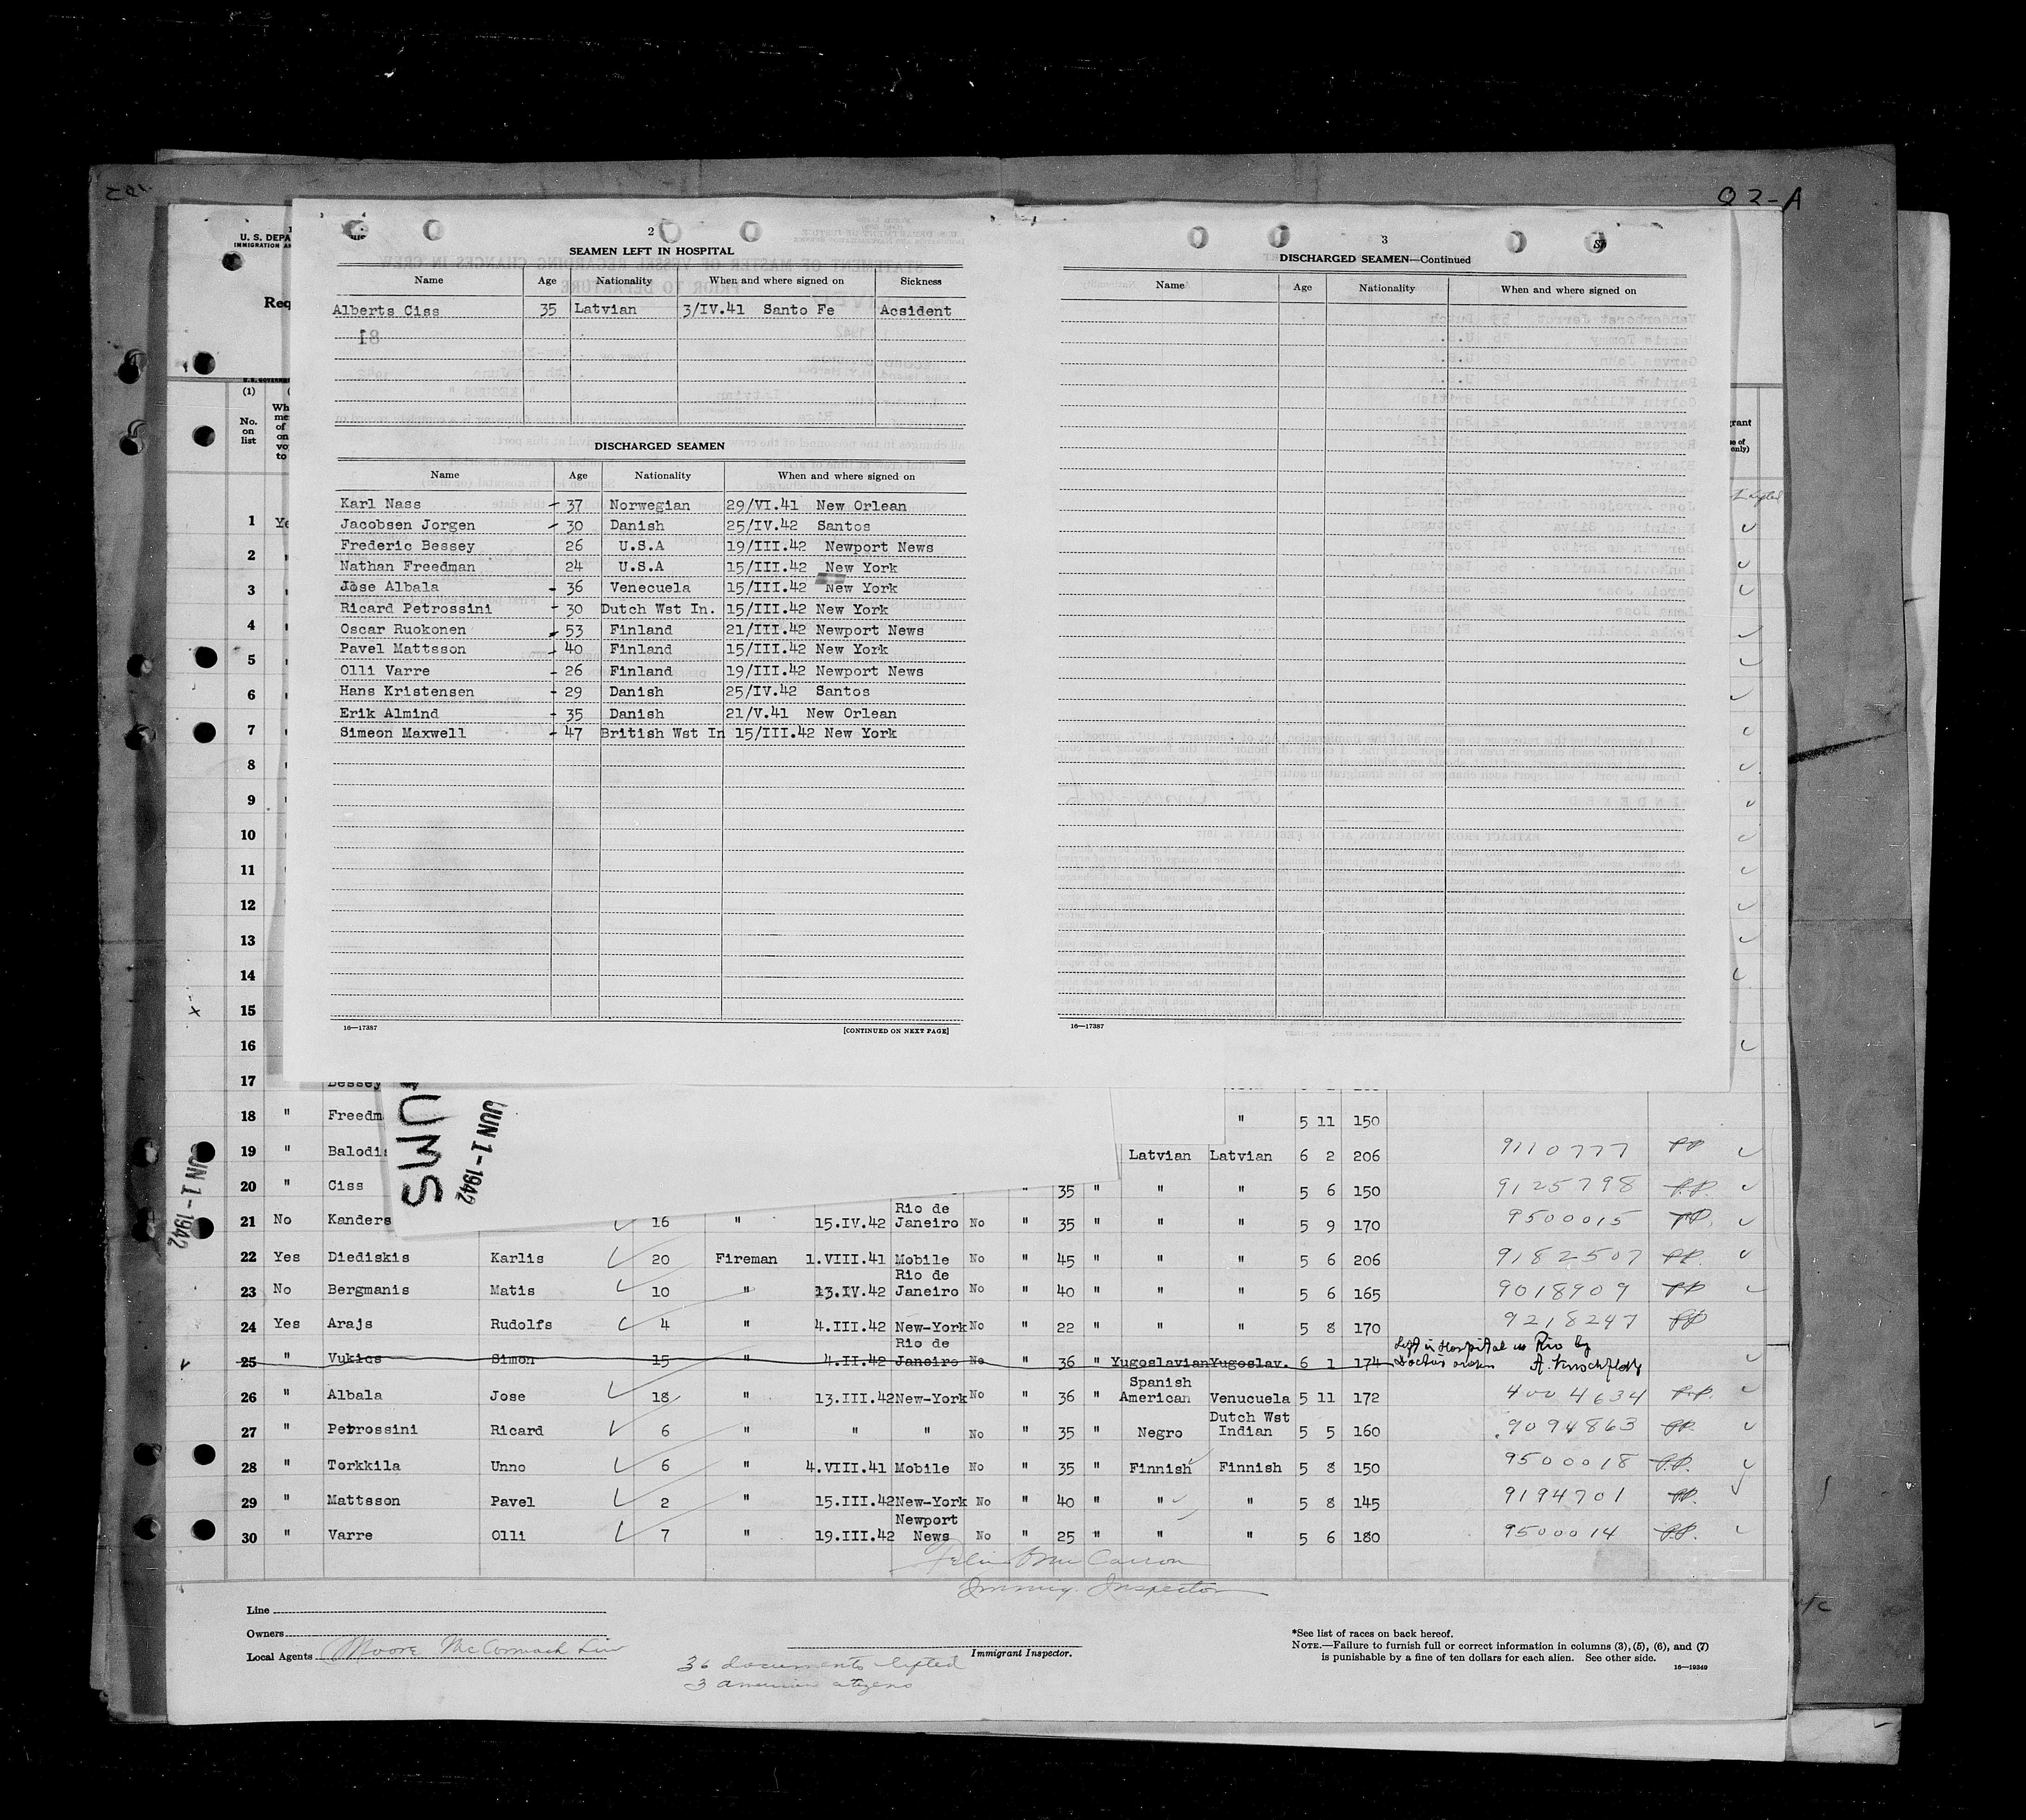 Q2-A
2
SEAMEN LEFT IN HOSPITAL
Name Age Nationality When and where signed on Sickness
Alberts Ciss 35 Latvian 3/IV.41 Santo Fe Acsident
81
DISCHARGED SEAMEN
Name Age Nationality When and where signed on
Karl Nass - 37 Norwegian 29/VI.41 New Orlean
Jacobsen Jorgen - 30 Danish 25/IV.42 Santos
Frederic Bessey 26 U.S.A 19/III.42 Newport News
Nathan Freedman 24 U.S.A 15/III.42 New York
Jose Albala - 36 Venecuela 15/III.42 New York
Ricard Petrossini - 30 Dutch Wst In. 15/III.42 New York
Oscar Ruokonen - 53 Finland 21/III.42 Newport News
Pavel Mattsson - 40 Finland 15/III.42 New York
Olli Varre - 26 Finland 19/III.42 Newport News
Hans Kristensen - 29 Danish 25/IV.42 Santos
Erik Almind - 35 Danish 21/V.41 New Orlean
Simeon Maxwell - 47 British Wst In 15/III.42 New York
16—17387 [CONTINUED ON NEXT PAGE]
3
DISCHARGED SEAMEN—Continued
Name Age Nationality When and where signed on
16—17387
U. S. DEPA
IMMIGRATION AN
Req
(1)
No. on list
1 Ye
2 "
3 "
4 "
5 "
6 "
7 "
8 "
9 "
10 "
11 "
12 "
13 "
14
15
16
17 Bessey
18 " Freedm " 5 11 150
19 " Balodis Latvian Latvian 6 2 206 9110777 PP
20 " Ciss 35 " " " 5 6 150 9125798 P.P.
21 No Kanders 16 " 15.IV.42 Rio de Janeiro No " 35 " " " 5 9 170 9500015 PP.
22 Yes Diediskis Karlis 20 Fireman 1.VIII.41 Mobile No " 45 " " " 5 6 206 9182507 PP.
23 No Bergmanis Matis 10 " 13.IV.42 Rio de Janeiro No " 40 " " " 5 6 165 9018909 PP
24 Yes Arajs Rudolfs 4 " 4.III.42 New-York No " 22 " " " 5 8 170 9218247 PP
25 " Vukics Simon 15 4.II.42 Rio de Janeiro No " 36 " Yugoslavian Yugoslav. 6 1 174 Left in Hospital in Rio by Doctors orders
26 " Albala Jose 18 " 13.III.42 New-York No " 36 " Spanish American Venucuela 5 11 172 4004634 P.P.
27 " Petrossini Ricard 6 " " " No " 35 " Negro Dutch Wst Indian 5 5 160 9094863 PP.
28 " Torkkila Unno 6 " 4.VIII.41 Mobile No " 35 " Finnish Finnish 5 8 150 9500018 P.P.
29 " Mattsson Pavel 2 " 15.III.42 New-York No " 40 " " " 5 8 145 9194701 PP.
30 " Varre Olli 7 " 19.III.42 Newport News No " 25 " " " 5 6 180 9500014 P.P.
UMS
JUN 1-1942
JUN 1-1942
Immig. Inspector
Line
Owners
Local Agents Moore McCormack Line
Immigrant Inspector.
36 documents lifted
3 american citizens
*See list of races on back hereof.
NOTE.—Failure to furnish full or correct information in columns (3), (5), (6), and (7)
is punishable by a fine of ten dollars for each alien. See other side.
16—19349